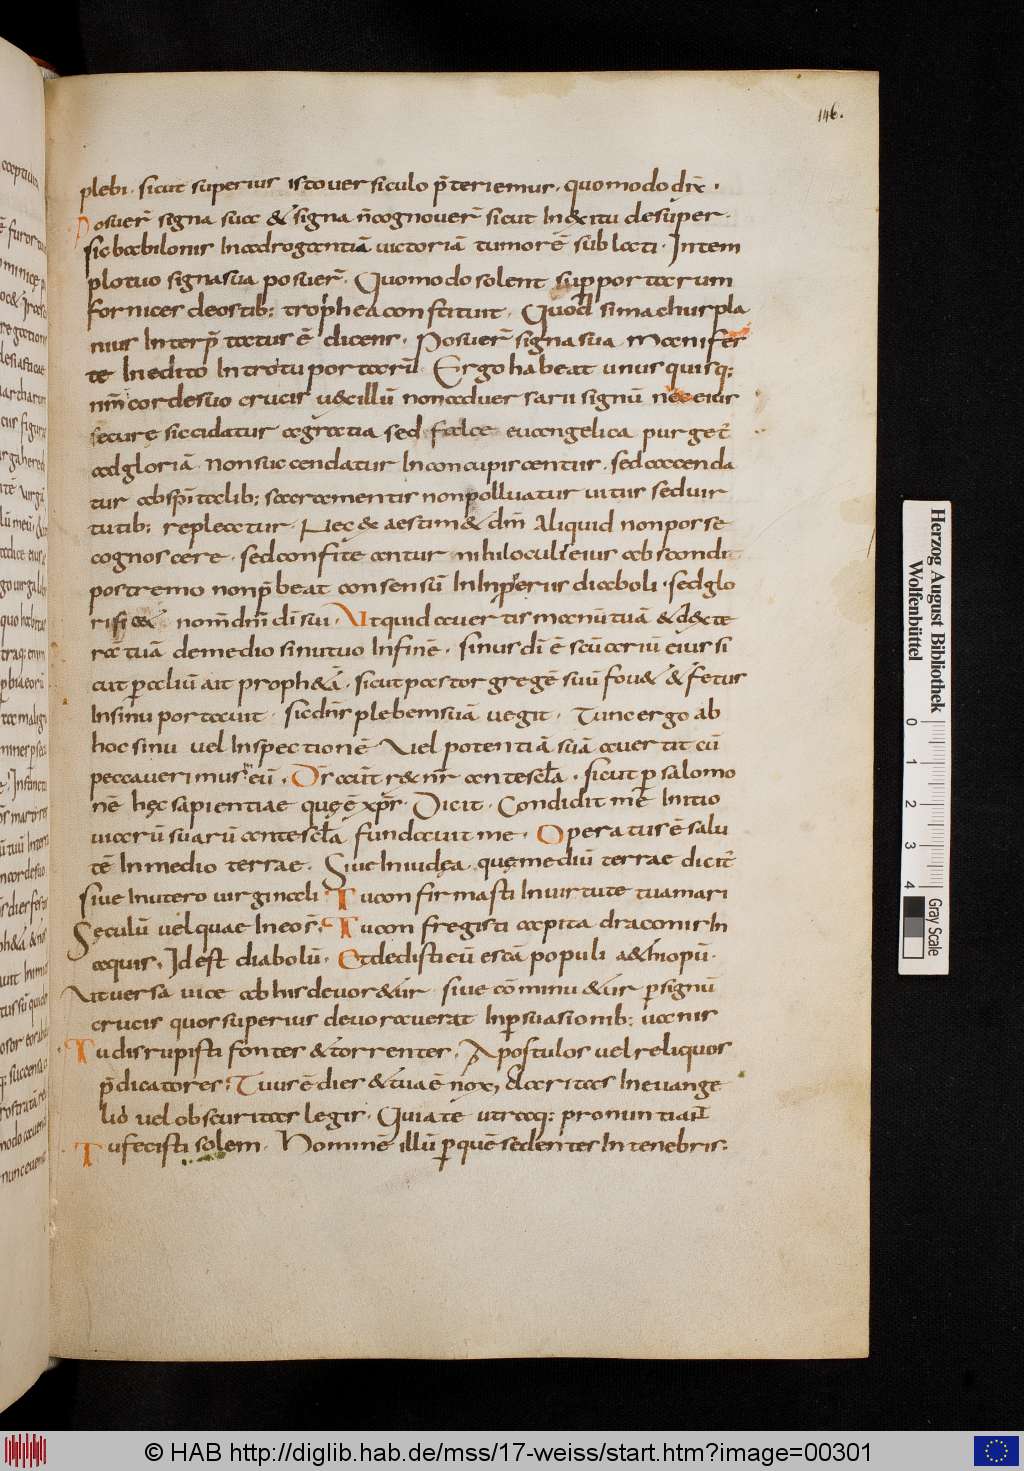 146.
plebi · sicut superius isto versiculo p̄teriemur · quomodo dix̄ ·
Posuer̄ signa sua & signa n̄ cognouer̄ sicut in exitu desuper ·
sic babilonis in adrogantiā uictoriā tumorē sublati · In tem
plo tuo signa sua posuer̄ · Quomodo solent supportarum
fornices deostib; tropheaconstituit · Quod simachus pla
nius interp̄tatus ē dicens · Posuer̄ signa sua manifes
te in edito introitu portarū · Ergo habeat unusquisq;
nrm̄ cordesuo crucis uexillū non aduersarii signū nec eius
secure siccidatur a gratia sed falce euangelica purget̄
ad gloriā · non succendatur in concupiscentiis · sed accenda
tur ab sp̄italib; sacramentis non polluatur uitiis sed uir
tutib; repleatur · Nec & aestim& dm̄ aliquid non posse
cognoscere · sed confiteantur nihil oculis eius abscondit
postremo non p̄beat consensū in inperius diaboli · sed glo
rificat nom̄ dm̄ di sui · Utquid auertis manū tuā & dexte
rā tuā de medio sinu tuo in finē · sinus di ē scūariū eius si
cut p aliū ait proph&ā · sicut pastor gregē suū fou& & fetus
in sinu portauit · sic dn̄s plebem suā uegit · Tunc ergo ab
hoc sinu uel inspectionē uel potentiā suā auertit cū
peccauerimus in eū · Ds̄ aut̄ rex nr̄ ante scl̄a · sicut p salomo
nē hęc sapientiae quę ē xp̄s · Dicit · Condidit me initio
uiarū suarū ante scl̄a fundauit me · Operatus ē salu
tē in medio terrae · Siue in iudęa quę mediū terrae dicit̄
siue in utero uirginali · Tu confirmasti in uirtute tua mari
Sęculū uel quae in eo s̄ · Tu confregisti capita draconis in
aquis · Id est diabolū · Et dedisti eū escā populi a&hiopū ·
Ut uersa uice ab his deuor&ur · siue cōminu&ur p signū
crucis quos superius deuorauerat in p suasionib; uanis
Tu disrupisti fontes & torrentes · Apostulos uel reliquos
p̄dicatores; Tuus ē dies & tua ē nox, claritas in euange
lio uel obscuritas legis · Quia te utraq; pronuntiant
Tu fecisti solem · Hominē illū p quē sedentes in tenebris;
Herzog August Bibliothek
Wolfenbüttel
0 1 2 3 4
Gray Scale
© HAB http://diglib.hab.de/mss/17-weiss/start.htm?image=00301